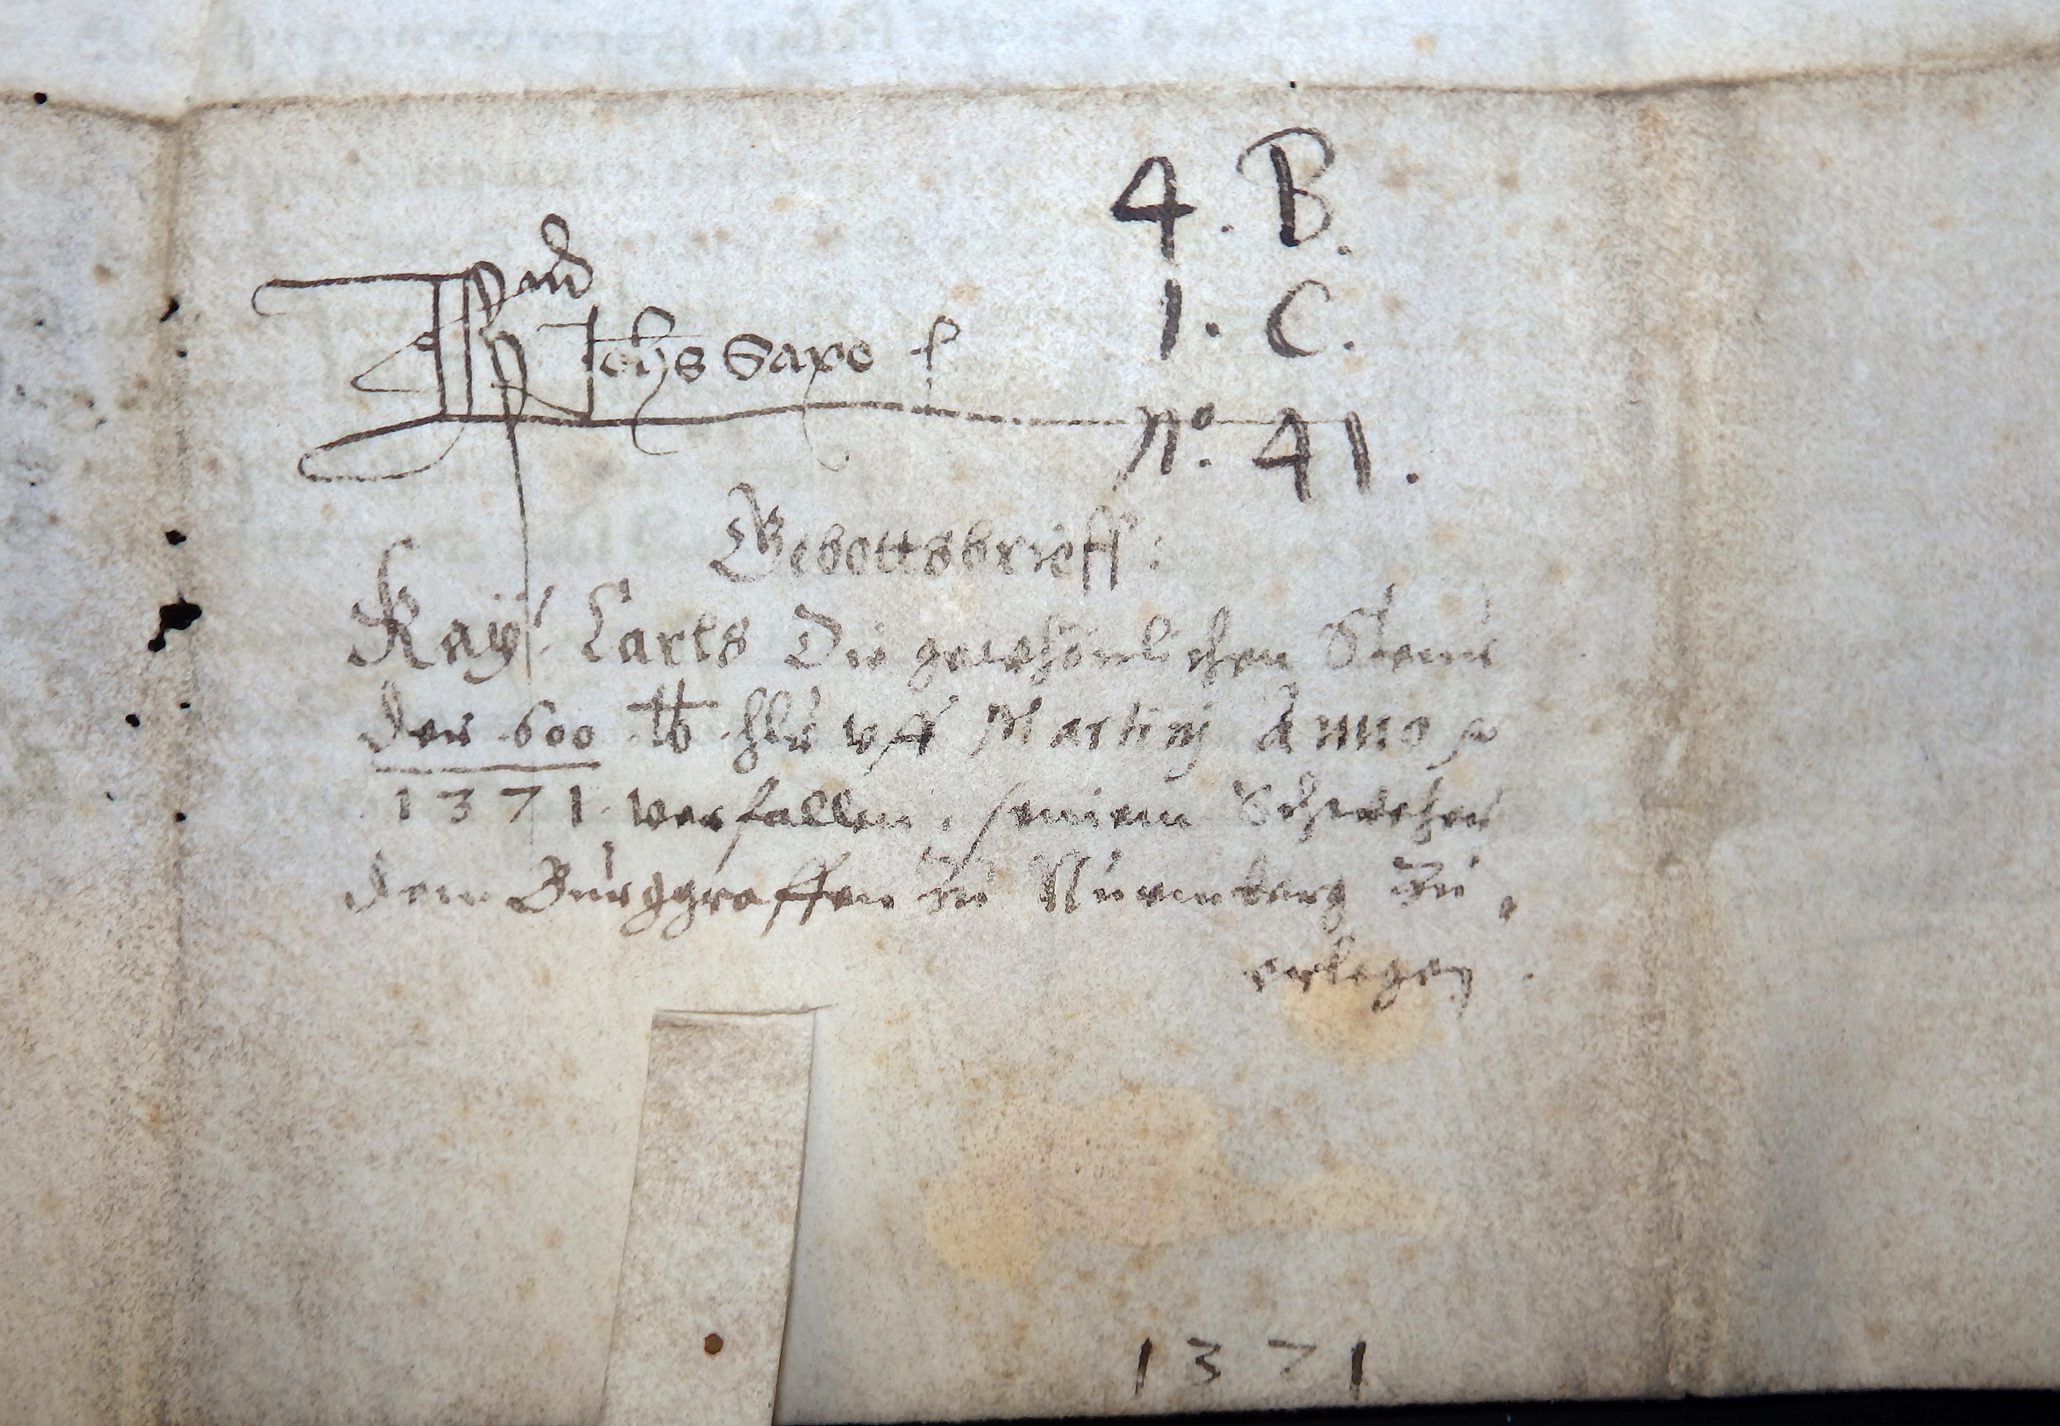 4. B.
1. C.
Nᵒ. 41.
R
Johẽs Saxo
Gebottsbrieff:
Kaÿ. Carls Die gewohnlichen Steur
der 600 ℔ hlr vff Martinj Anno
1371 verfallen, seinem Schweher
dem Burggraffen zu Nürmberg zu
erlegen.
1371